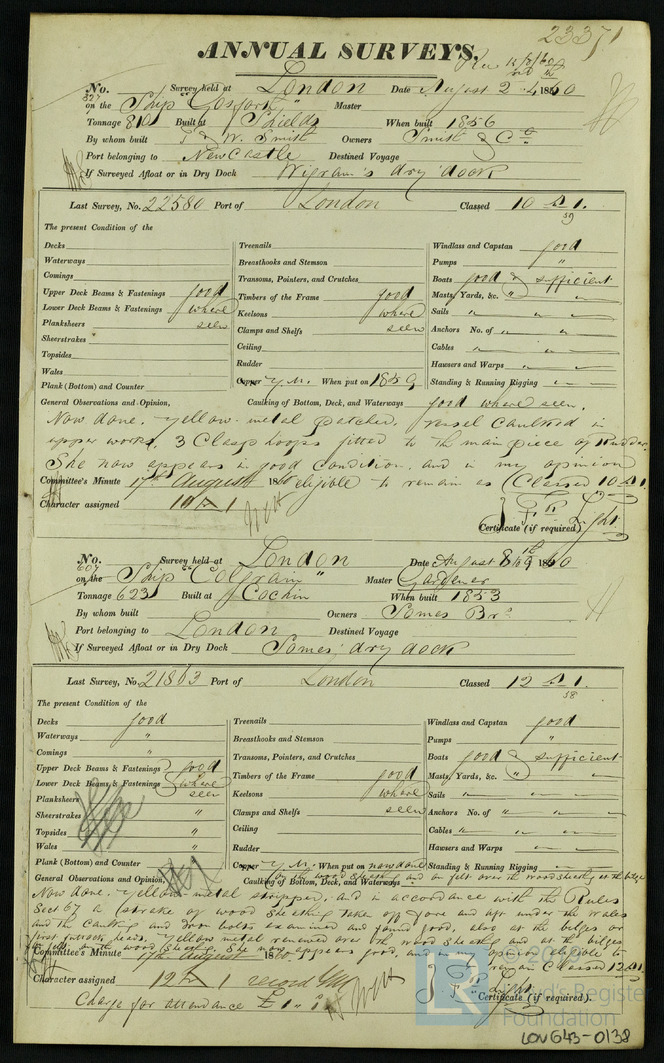 23371
ANNUAL SURVEYS.
No. 827 Survey held at London Date August 2 1860
on the Ship "Gosforth" Master
Tonnage 810 Built at Shields When built 1856
By whom built T & W. Smith Owners Smith & Co.
Port belonging to Newcastle Destined Voyage
If Surveyed Afloat or in Dry Dock Wigram's dry dock
Last Survey, No. 22580 Port of London Classed 10 A 1. 59
The present Condition of the
Decks
Waterways
Comings
Upper Deck Beams & Fastenings good
Lower Deck Beams & Fastenings where
Planksheers seen
Sheerstrakes
Topsides
Wales
Plank (Bottom) and Counter
Treenails
Breasthooks and Stemson
Transoms, Pointers, and Crutches
Timbers of the Frame good
Keelsons where
Clamps and Shelfs seen
Ceiling
Rudder
Copper Y.M. When put on 1859
Windlass and Capstan good
Pumps "
Boats good & sufficient
Masts, Yards, &c. " "
Sails " " "
Anchors No. of " " "
Cables " " "
Hawsers and Warps " "
Standing & Running Rigging " "
General Observations and Opinion, Caulking of Bottom, Deck, and Waterways good where seen.
Now done. Yellow metal patched, vessel caulked in
upper works, 3 Clasp hoops fitted to the main piece of Rudder.
She now appears in good condition, and in my opinion
Committee's Minute 17th August 1860 eligible to remain as Classed 10 A 1.
Character assigned 10 A 1
Certificate (if required)
No. 607 Survey held at London Date August 8th & 9 1860
on the Ship "Colgrain" Master Gardener
Tonnage 623 Built at Cochin When built 1853
By whom built Owners Somes Brs.
Port belonging to London Destined Voyage
If Surveyed Afloat or in Dry Dock Somes' dry dock
Last Survey, No. 21863 Port of London Classed 12 A 1. 58
The present Condition of the
Decks good
Waterways "
Comings "
Upper Deck Beams & Fastenings good
Lower Deck Beams & Fastenings where
Planksheers seen
Sheerstrakes "
Topsides "
Wales "
Plank (Bottom) and Counter
Treenails
Breasthooks and Stemson
Transoms, Pointers, and Crutches
Timbers of the Frame good
Keelsons where
Clamps and Shelfs seen
Ceiling
Rudder
Copper Y.M. When put on now done
Windlass and Capstan good
Pumps "
Boats good & sufficient
Masts, Yards, &c. "
Sails "
Anchors No. of " "
Cables "
Hawsers and Warps
Standing & Running Rigging
on the wood sheathing and on felt over the wood sheathg at the bilge
General Observations and Opinion, Caulking of Bottom, Deck, and Waterways
Now done. Yellow metal stripped, and in accordance with the Rules
Sect 67 a strake of wood sheathing taken off fore and aft under the wales
and the caulking and iron bolts examined and found good, also at the bilges or
first futtock heads. Yellow metal renewed over the wood sheathing and at the bilges
the wood sheathing. She now appears good, and in my opinion eligible to
Committee's Minute 17th August 1860. remain Classed 12 A 1
Character assigned 12 A 1 record YM
Charge for attendance £1
Certificate (if required).
© 2019
Lloyd's Register
Foundation
LR
LOV643-0138